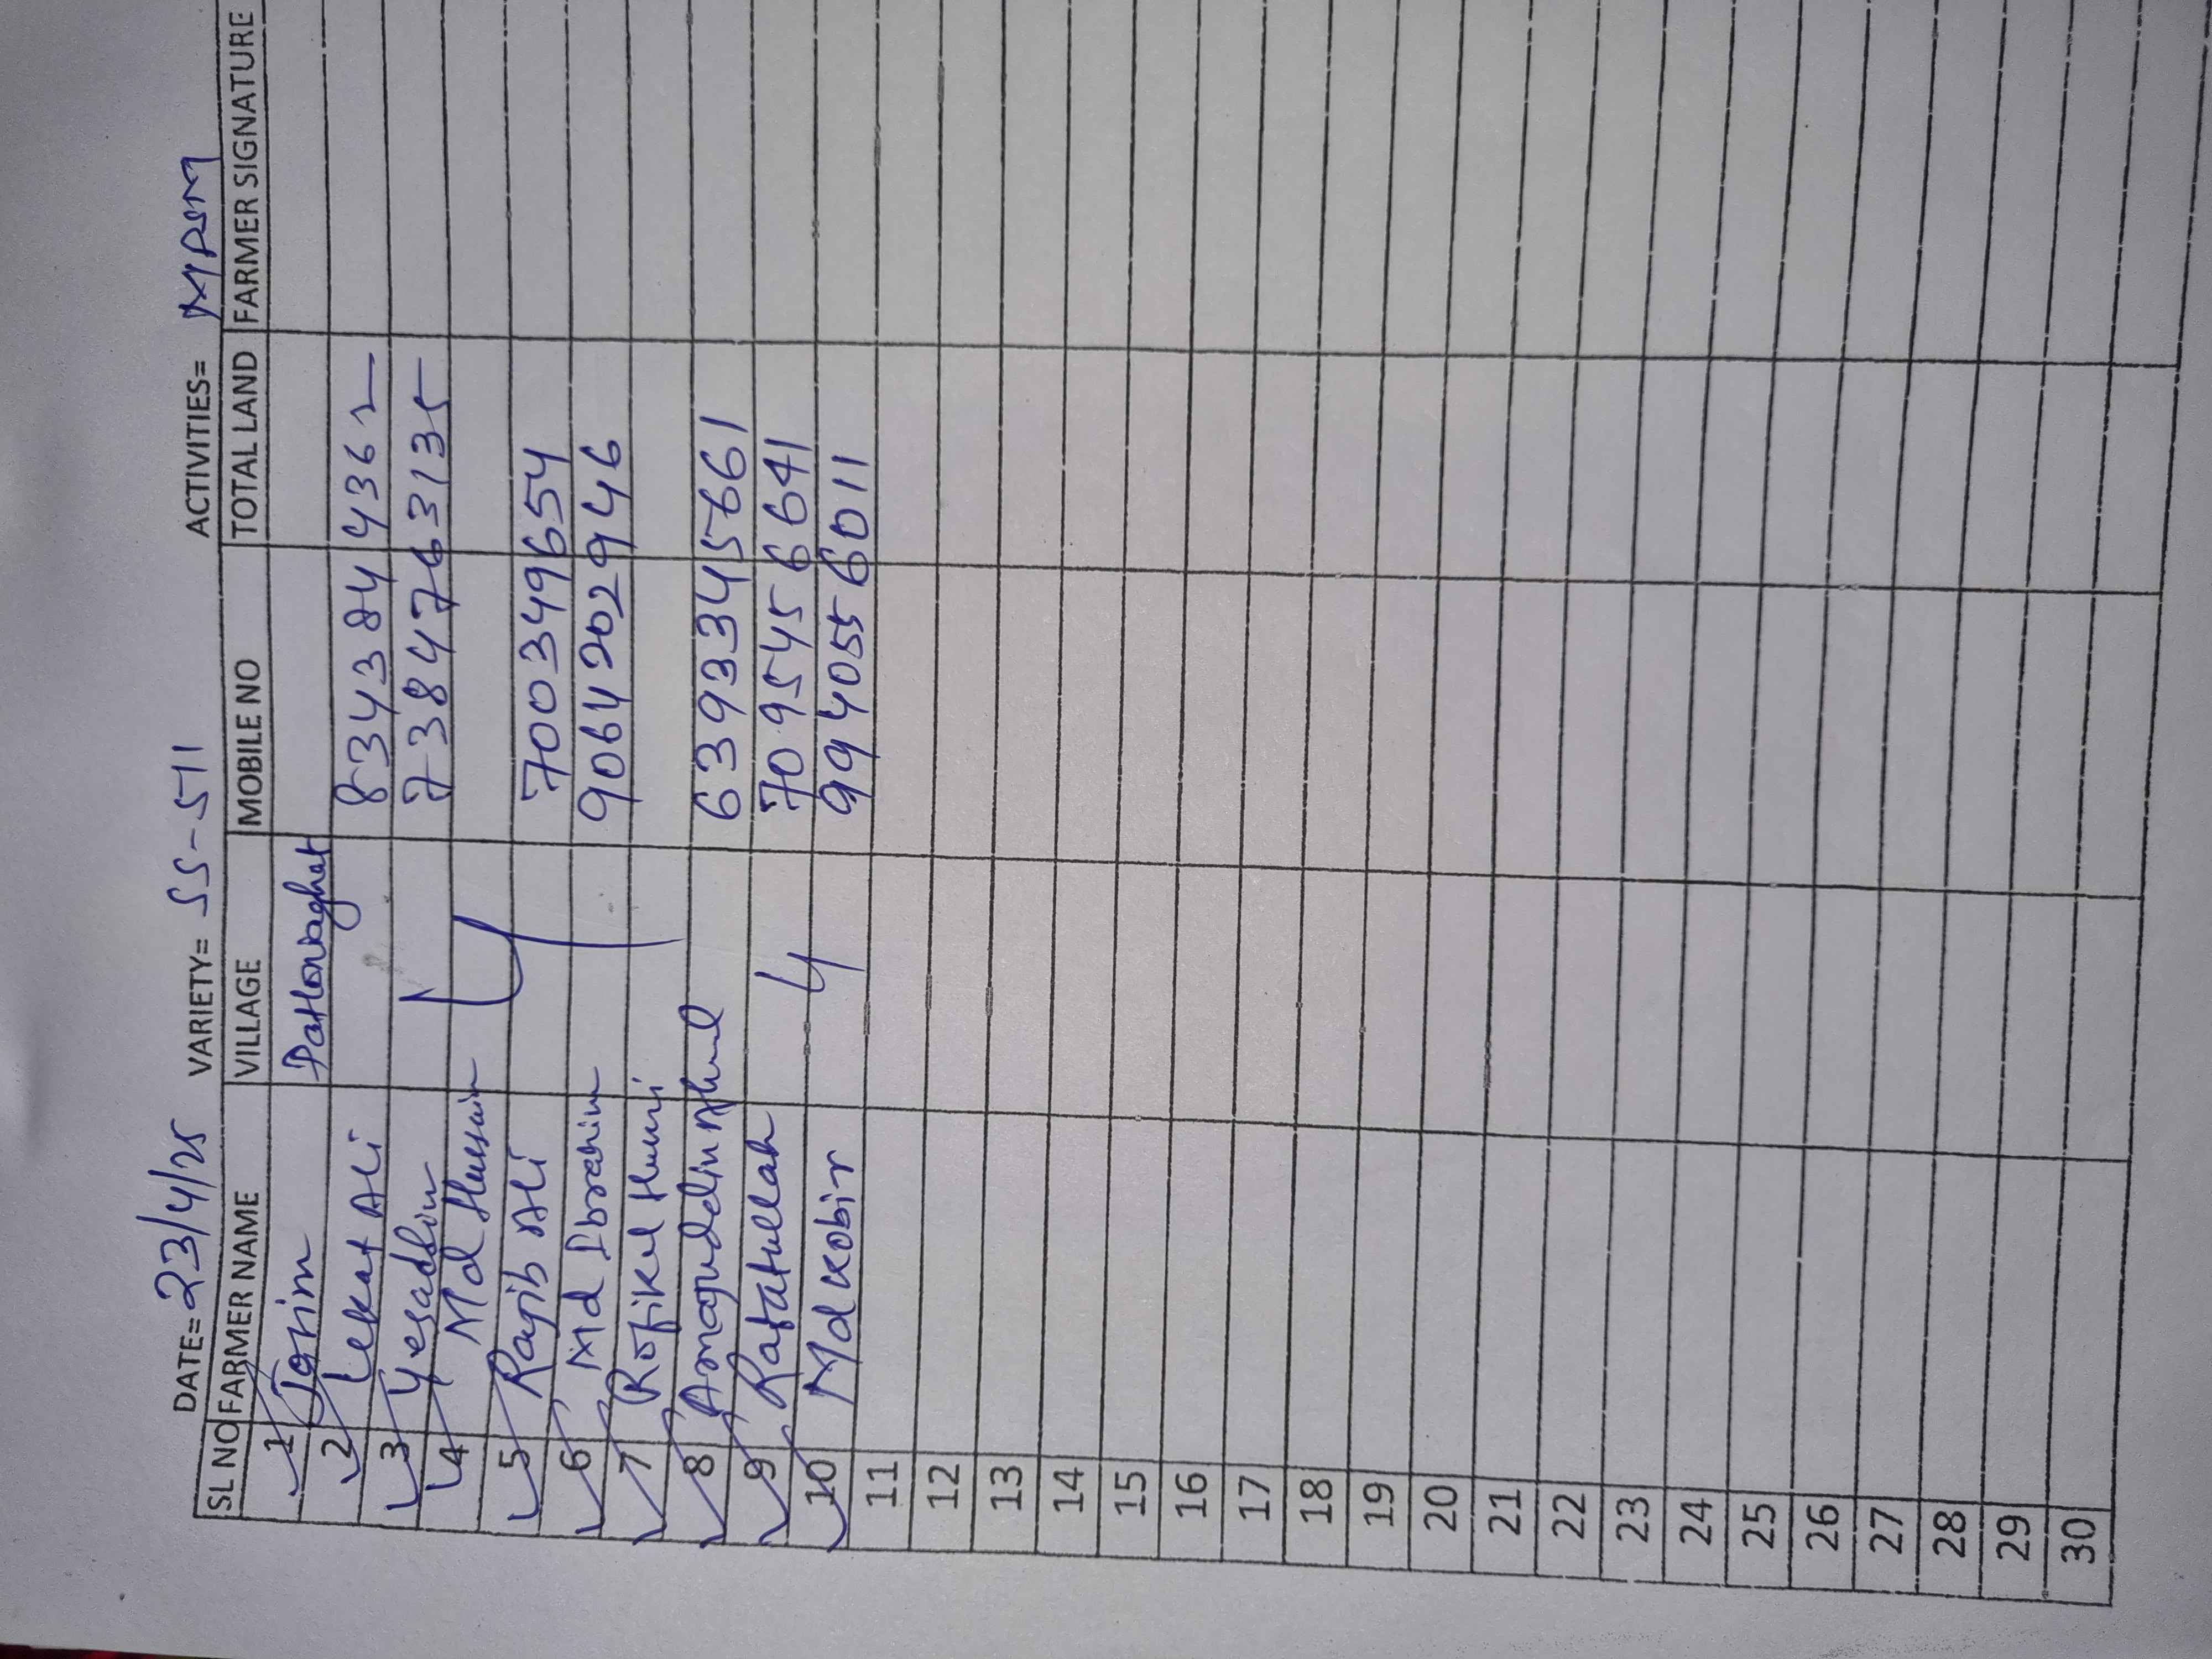 DATE= 23/4/25 VARIETY= SS-511 ACTIVITIES= MPSM
SL NO FARMER NAME VILLAGE MOBILE NO TOTAL LAND FARMER SIGNATURE
1 Jorim Pathorighat
2 Lekat Ali 8343844362
3 Yesaddin 7384763135
4 Md Hussain
5 Rajib Ali 7003349654
6 Md Ibrahim 9064202946
7 Rofikul
8 6393345661
9 Rafatullah 7095456641
10 Md Kobir 9940556011
11
12
13
14
15
16
17
18
19
20
21
22
23
24
25
26
27
28
29
30